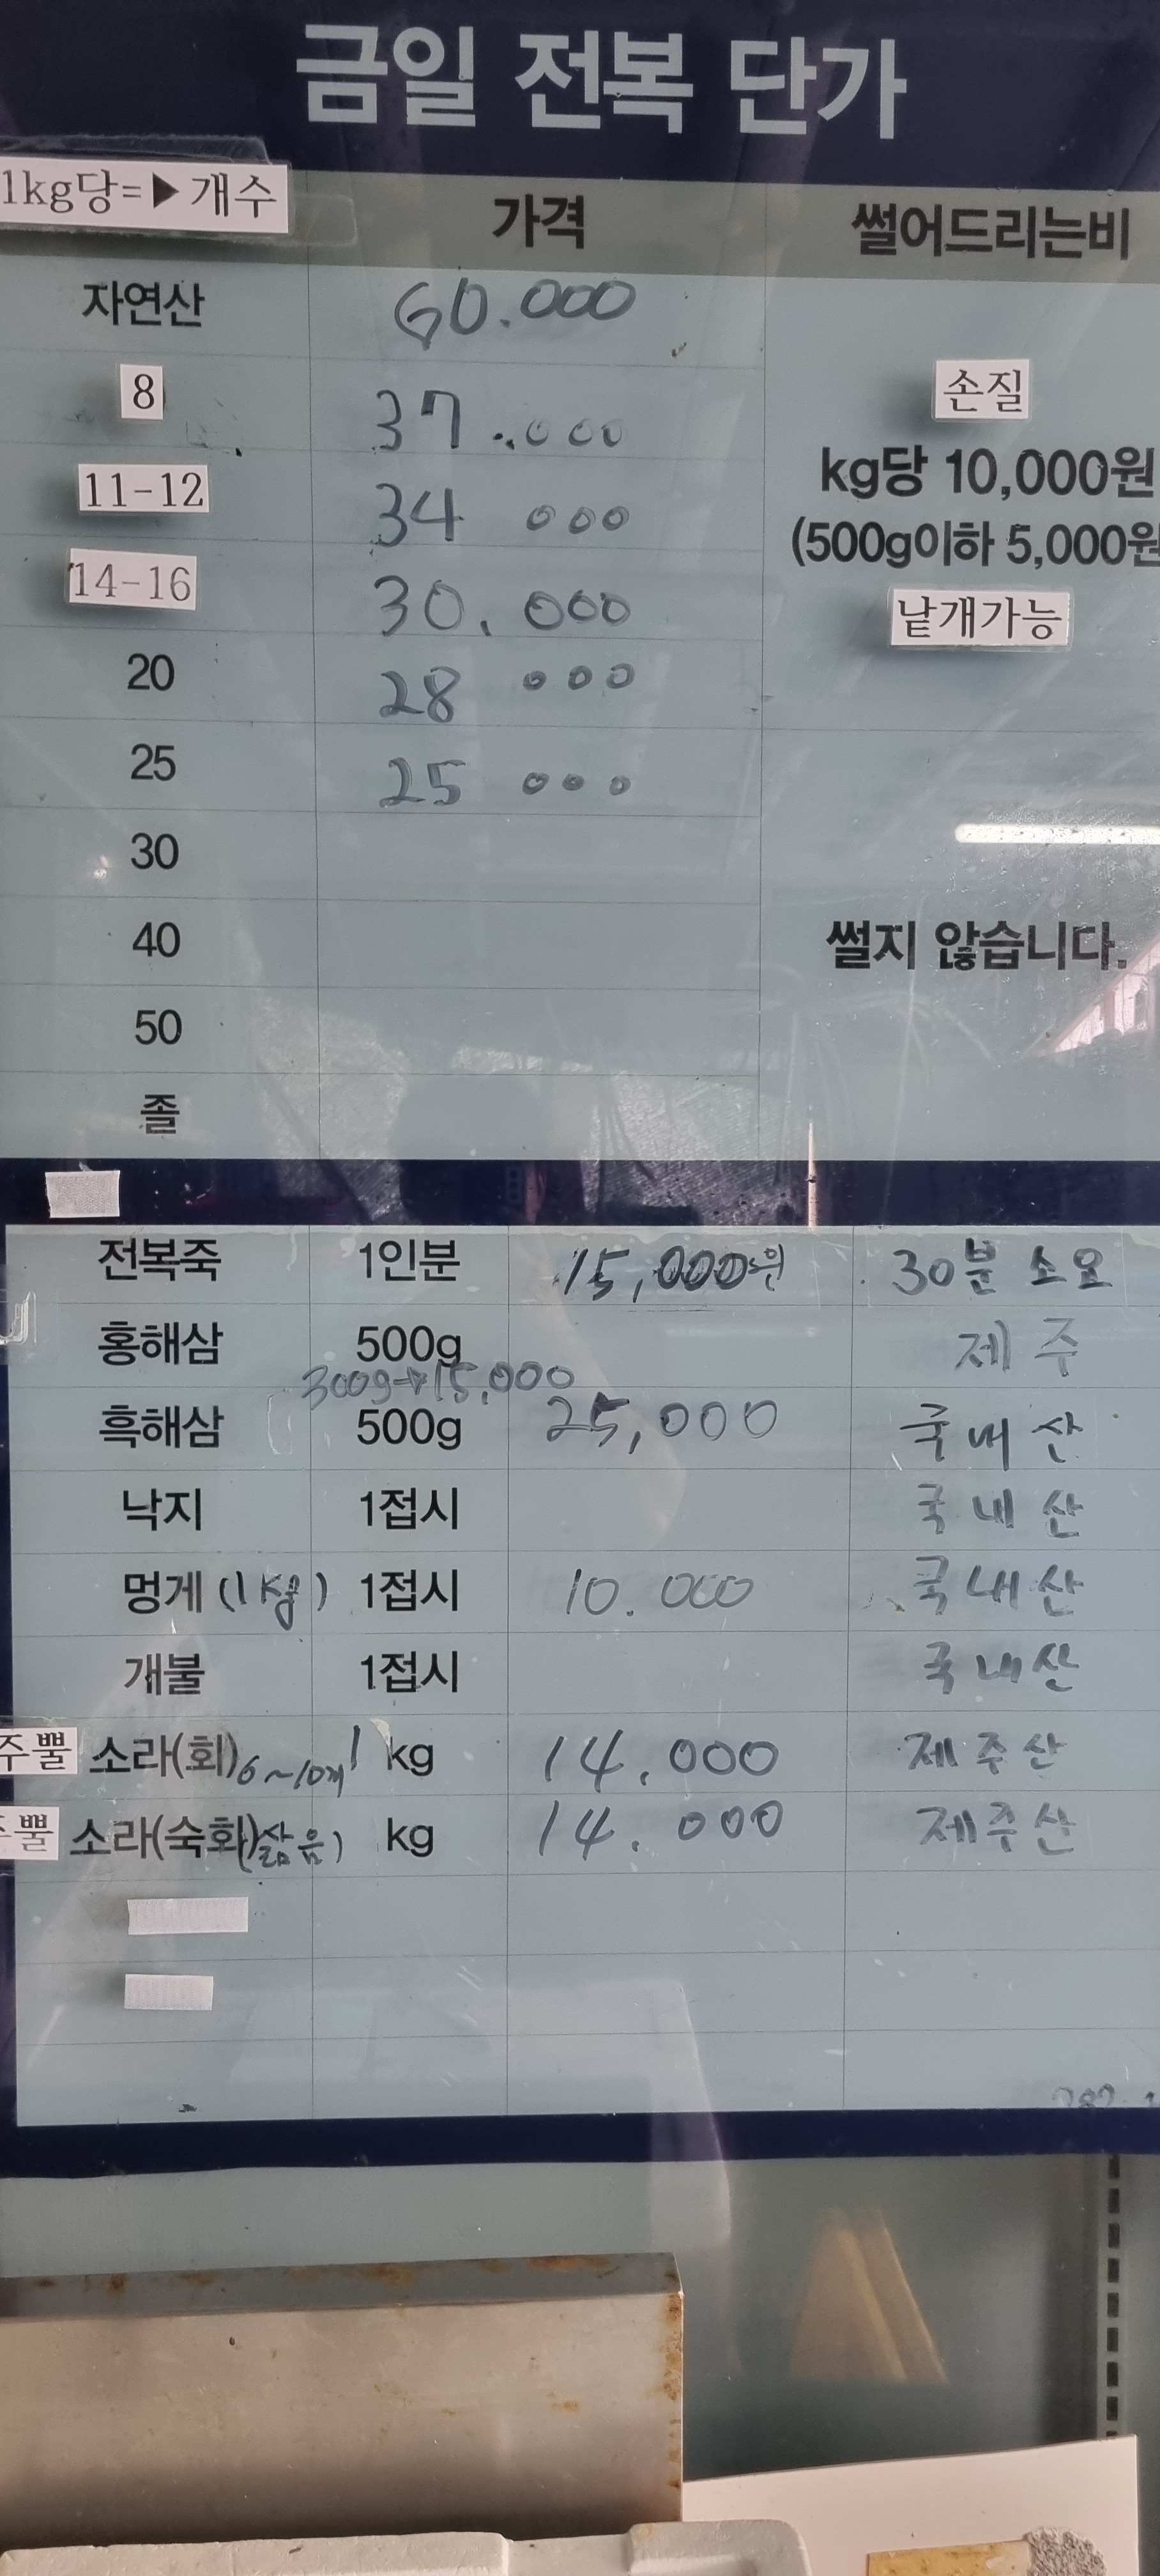 금일 전복 단가
1kg당=▶개수 가격 썰어드리는비
자연산 60.000
8 37.000 손질
11-12 34 000 kg당 10,000원
(500g이하 5,000원
14-16 30.000 낱개가능
20 28 000
25 25 000
30
40 썰지 않습니다.
50
졸
전복죽 1인분 15,000원 30분 소요
홍해삼 500g 제주
300g→15,000
흑해삼 500g 25,000 국내산
낙지 1접시 국내산
멍게 (1kg) 1접시 10.000 국내산
개불 1접시 국내산
주뿔 소라(회) 6~10개 1 kg 14.000 제주산
뿔 소라(숙회) (삶음) kg 14.000 제주산